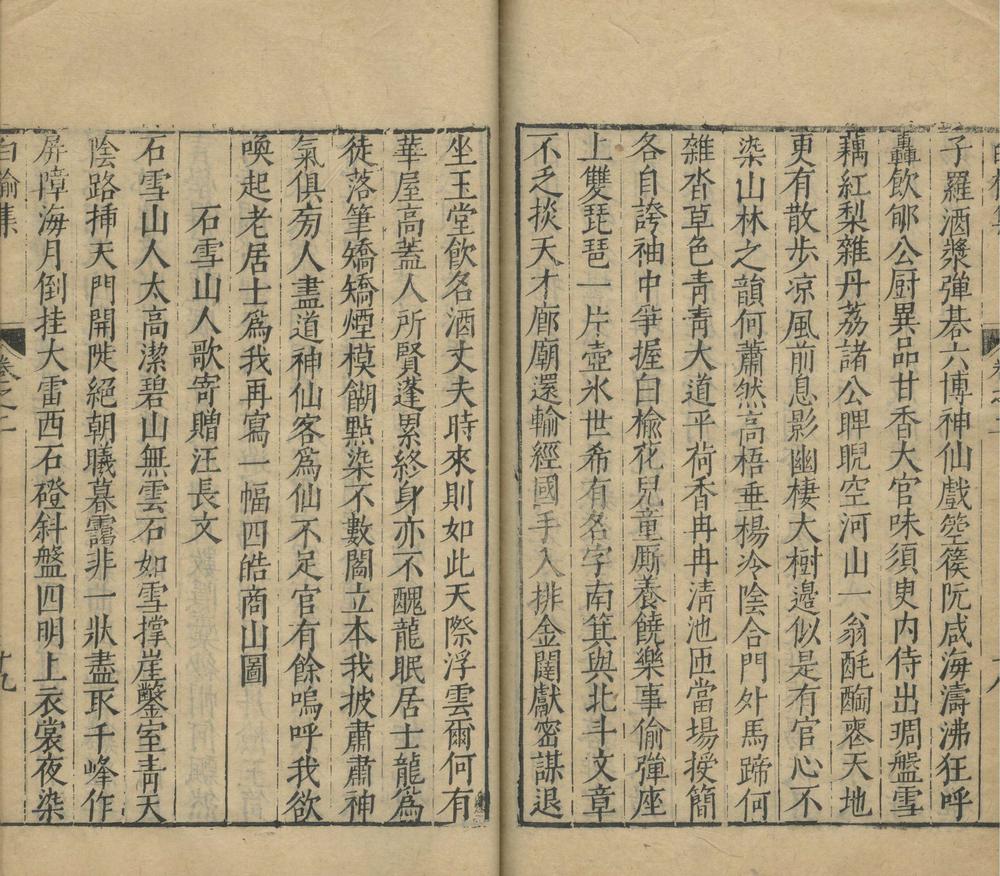 子羅酒漿彈碁六博神仙戲箜篌阮咸海濤沸狂呼
轟飲郇公厨異品甘香大官味須臾内侍出琱盤雪
藕紅梨雜丹荔諸公睥睨空河山一翁酕醄塞天地
更有散步凉風前息影幽棲大樹邊似是有官心不
染山林之韻何蕭然高梧垂楊冷陰合門外馬蹄何
雜沓草色青青大道平荷香冉冉清池匝當場授簡
各自誇袖中爭握白楡花兒童厮養饒樂事偷彈座
上雙琵琶一片壺氷世希有名字南箕與北斗文章
不乏掞天才廊廟還輸經國手入排金闥獻密謀退
坐玉堂飲名酒丈夫時來則如此天際浮雲爾何有
華屋高蓋人所賢蓬累終身亦不醜龍眠居士龍爲
徒落筆矯矯煙模餬㸃染不數閻立本我披肅肅神
氣俱旁人盡道神仙客爲仙不足官有餘嗚呼我欲
喚起老居士爲我再寫一幅四皓商山圖
石雪山人歌寄贈汪長文
石雪山人太高潔碧山無雲石如雪撑崖鑿室青天
陰路揷天門開陡絕朝曦暮靄非一狀盡取千峰作
屏障海月倒挂大雷西石磴斜盤四明上衣裳夜染
白楡集
卷之二
十九